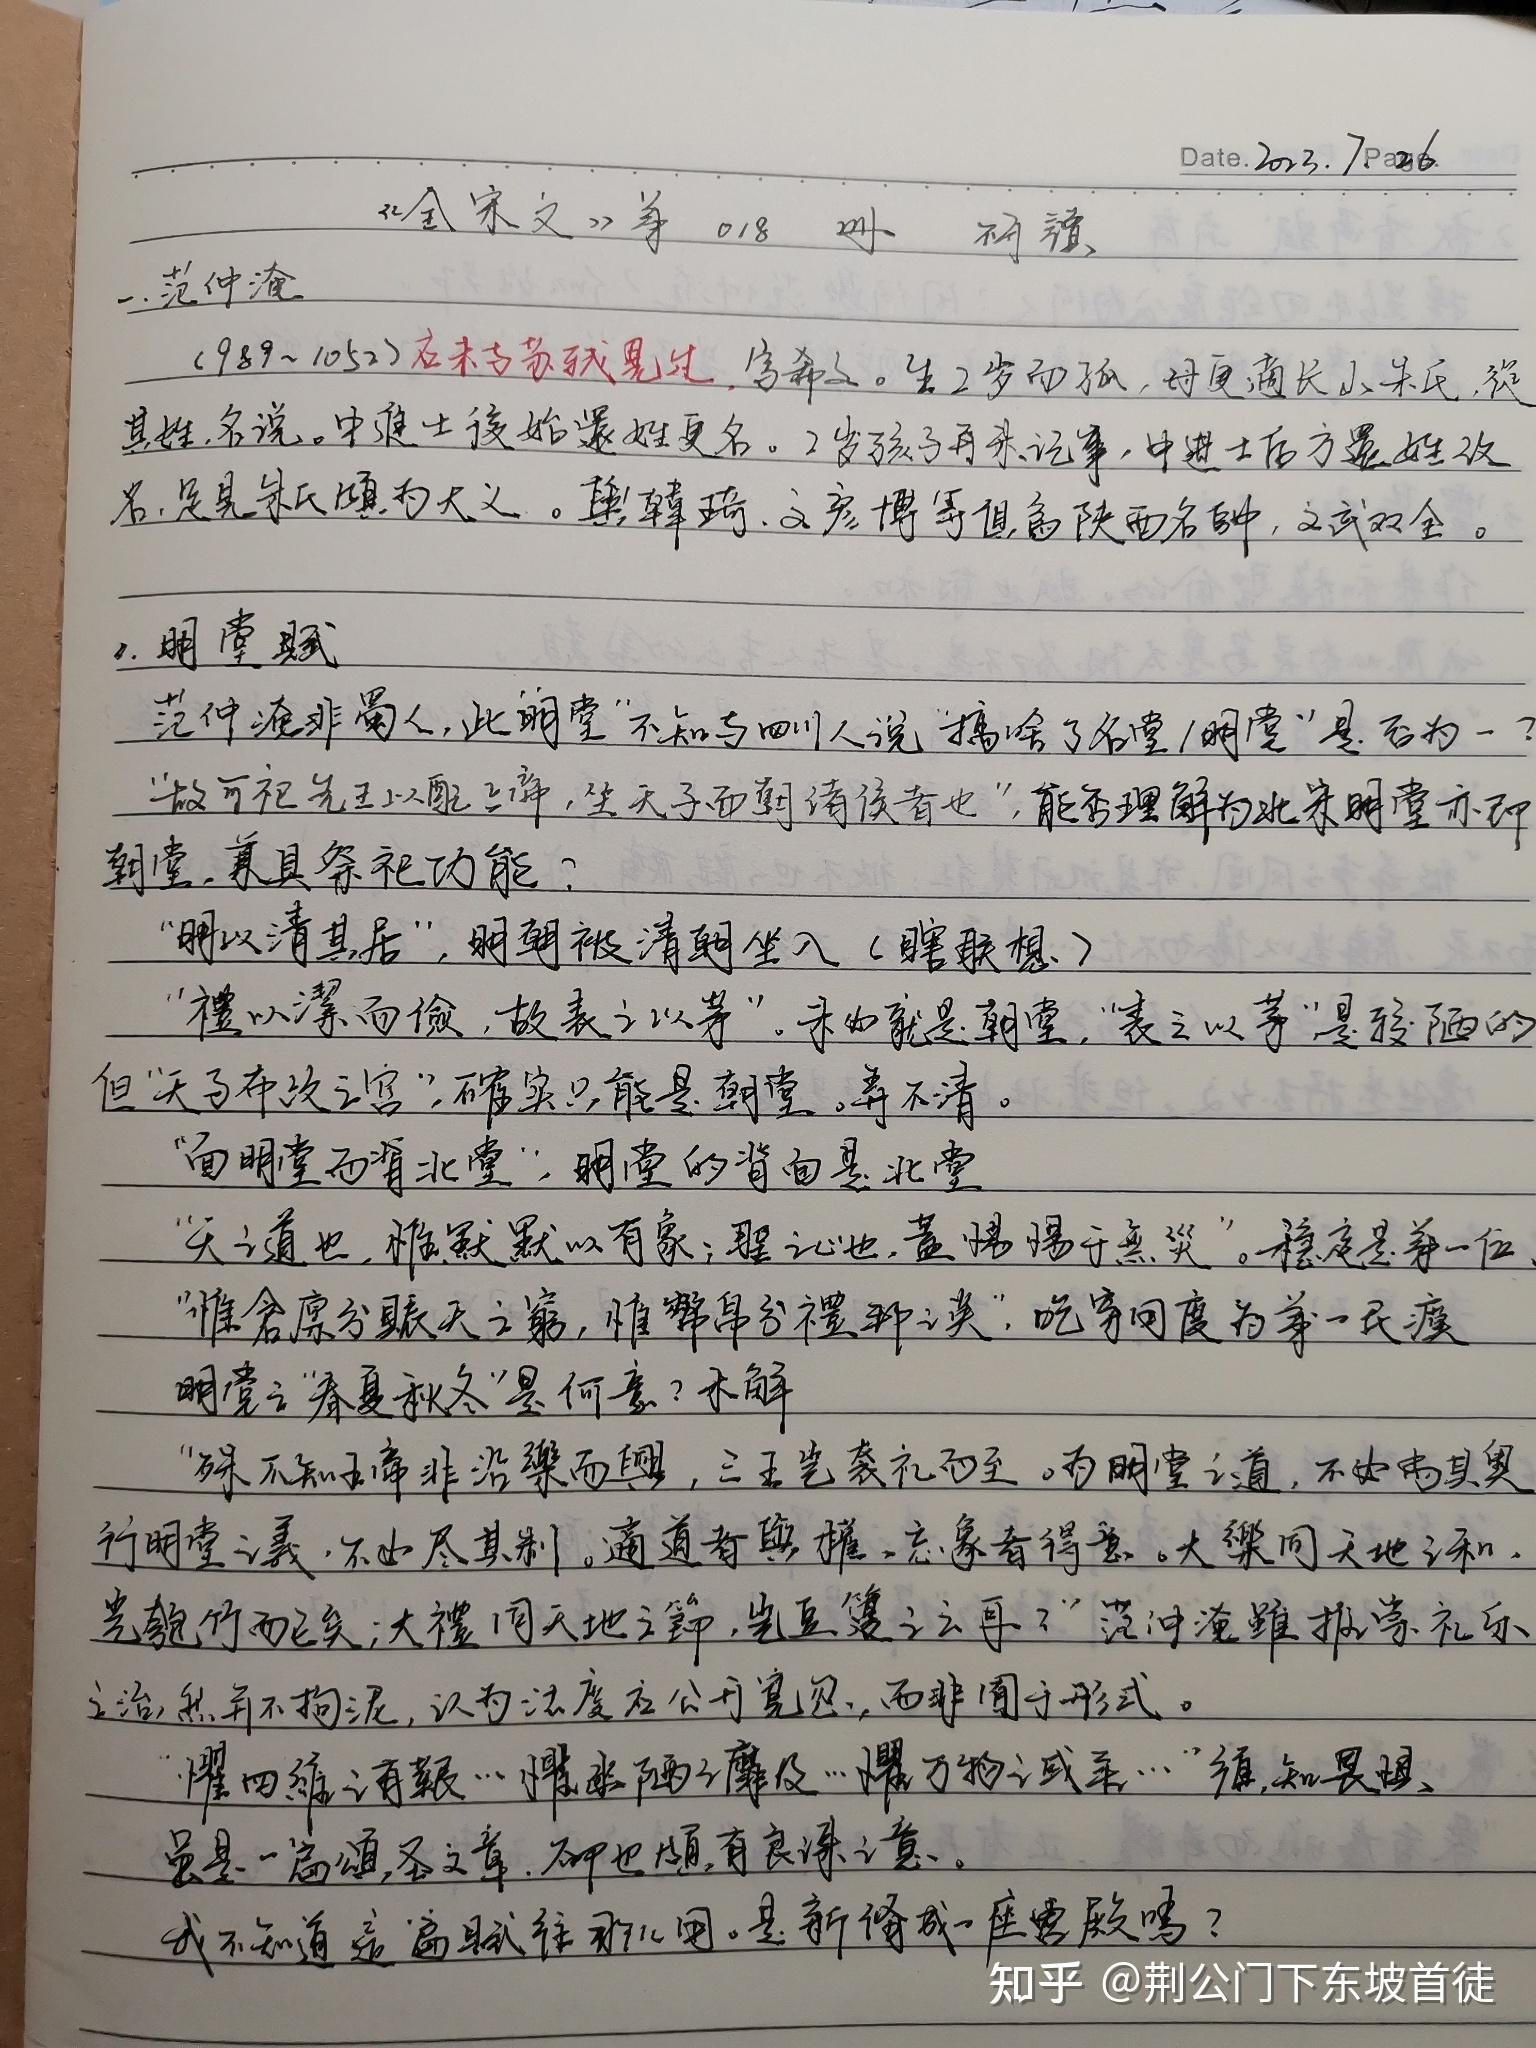 Date. 2023. 7 Page 26
《全宋文》第 018 册 研读
一.范仲淹
(989~1052)应未与苏轼晃生,字希文。生2岁而孤,母更適长山朱氏,從
其姓,名说。中進士後始還姓更名。2岁孩子再未记事,中進士后方還姓改
名,足見朱氏頗为大义。與韓琦、文彦博等俱為陕西名帥,文武双全。
1.明堂賦
范仲淹非蜀人,此"明堂"不知与四川人说"搞啥了名堂/明堂"是否为一?
"故可祀先王以配上帝,坐天子而朝诸侯者也",能否理解为北宋明堂亦即
朝堂,兼具祭祀功能?
"明以清其居",明朝被清朝坐入(瞎联想)
"禮以潔而儉,故表之以茅"。未必就是朝堂,"表之以茅"是较陋的
但"天子布政之宫",確实只能是朝堂。弄不清。
"面明堂而背北堂",明堂的背面是北堂
"天之道也,惟默默以有象;聖之心也,蓋惕惕于無災"。稳定是第一位、
"惟倉廪分賑天之窮,惟幣帛分禮邦之美",吃穿同度为第一民瘼
明堂之"春夏秋冬"是何意?未解
"殊不知五帝非沿樂而興,三王岂袭礼而至。为明堂之道,不必尚其奥
行明堂之義,不必尽其制。適道者與權,忘象者得意。大樂同天地之和,
岂匏竹而已矣;大禮同天地之節,岂豆簋之云耳?"范仲淹雖推崇礼乐
之治,然并不拘泥,认为法度应公开寬见,而非囿于形式。
"懼四維之有艱…懼風陋之靡及…懼万物之或失…"须知畏惧、
虽是一篇頌圣文章,硬也頗有良谏之意。
我不知道這篇賦往那儿用。是新修成一座宫殿吗?
知乎 @荆公门下东坡首徒